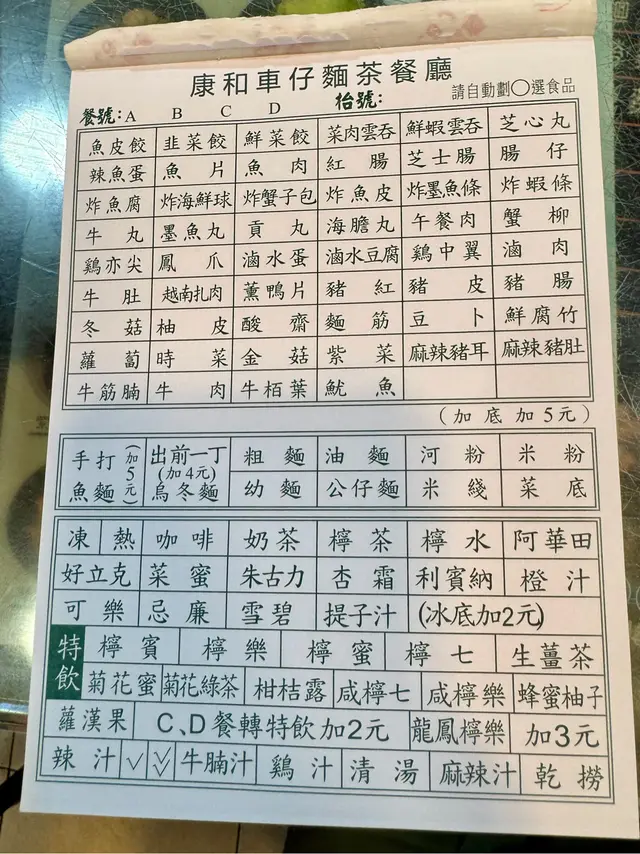 康和車仔麵茶餐廳
餐號: A B C D 枱號: 請自動劃○選食品
魚皮餃 韭菜餃 鮮菜餃 菜肉雲吞 鮮蝦雲吞 芝心丸
辣魚蛋 魚片 魚肉 紅腸 芝士腸 腸仔
炸魚腐 炸海鮮球 炸蟹子包 炸魚皮 炸墨魚條 炸蝦條
牛丸 墨魚丸 貢丸 海膽丸 午餐肉 蟹柳
鷄亦尖 鳳爪 滷水蛋 滷水豆腐 鷄中翼 滷肉
牛肚 越南扎肉 薰鴨片 豬紅 豬皮 豬腸
冬菇 柚皮 酸齋 麵筋 豆卜 鮮腐竹
蘿蔔 時菜 金菇 紫菜 麻辣豬耳 麻辣豬肚
牛筋腩 牛肉 牛栢葉 魷魚
(加底加5元)
手打魚麵(加5元) 出前一丁 粗麵 油麵 河粉 米粉
(加4元)
烏冬麵 幼麵 公仔麵 米綫 菜底
凍 熱 咖啡 奶茶 檸茶 檸水 阿華田
好立克 菜蜜 朱古力 杏霜 利賓納 橙汁
可樂 忌廉 雪碧 提子汁 (冰底加2元)
特飲 檸賓 檸樂 檸蜜 檸七 生薑茶
菊花蜜 菊花綠茶 柑桔露 咸檸七 咸檸樂 蜂蜜柚子
蘿漢果 C、D餐轉特飲加2元 龍鳳檸樂 加3元
辣汁 ✓ ✓✓ 牛腩汁 鷄汁 清湯 麻辣汁 乾撈